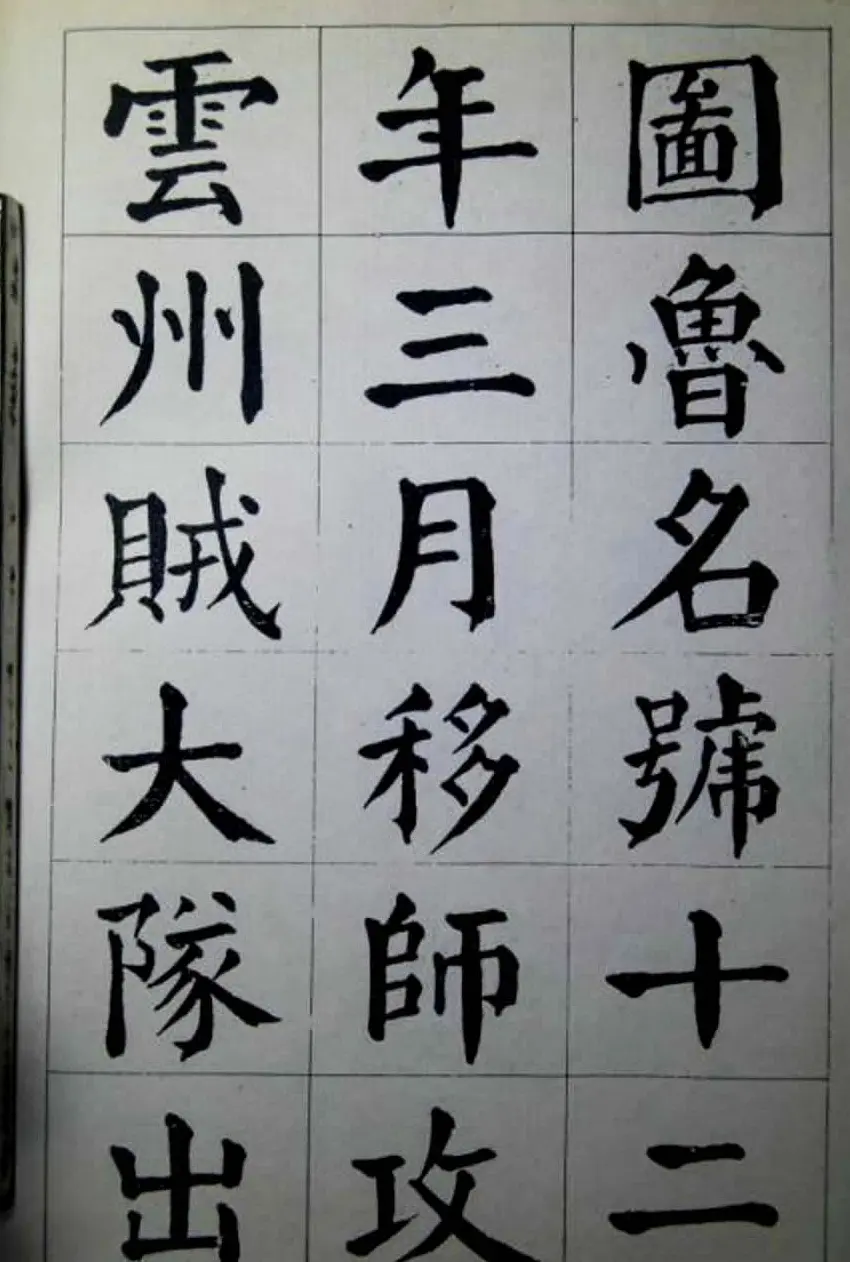 圖魯名號十二
年三月移師攻
雲州賊大隊出